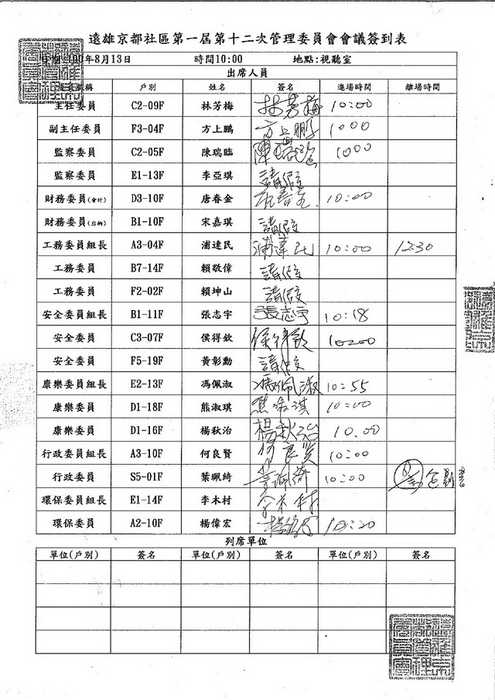 遠雄京都社區第一屆第十二次管理委員會會議簽到表
100年8月13日 時間10:00 地點:視聽室
出席人員
職稱 戶別 姓名 簽名 進場時間 離場時間
主任委員 C2-09F 林芳梅 林芳梅 10:00
副主任委員 F3-04F 方上鵬 方上鵬 1000
監察委員 C2-05F 陳瑞臨 陳瑞臨 1000
監察委員 E1-13F 李亞琪 請假
財務委員(會計) D3-10F 唐春金 唐春金 10:00
財務委員(出納) B1-10F 宋嘉琪 請假
工務委員組長 A3-04F 浦達民 浦達民 10:00 12:30
工務委員 B7-14F 賴敬偉 請假
工務委員 F2-02F 賴坤山 請假
安全委員組長 B1-11F 張志宇 張志宇 10:18
安全委員 C3-07F 侯得欽 侯得欽 10:00
安全委員 F5-19F 黃彰勳 請假
康樂委員組長 E2-13F 馮佩淑 馮佩淑 10:55
康樂委員 D1-18F 熊淑琪 熊淑琪 10:00
康樂委員 D1-16F 楊秋治 楊秋治 10.00
行政委員組長 A3-10F 何良賢 何良賢 10:00
行政委員 S5-01F 葉珮綺 10:00
環保委員組長 E1-14F 李木村 李木村
環保委員 A2-10F 楊偉宏 楊偉宏 10:20
列席單位
單位(戶別) 簽名 單位(戶別) 簽名 單位(戶別) 簽名